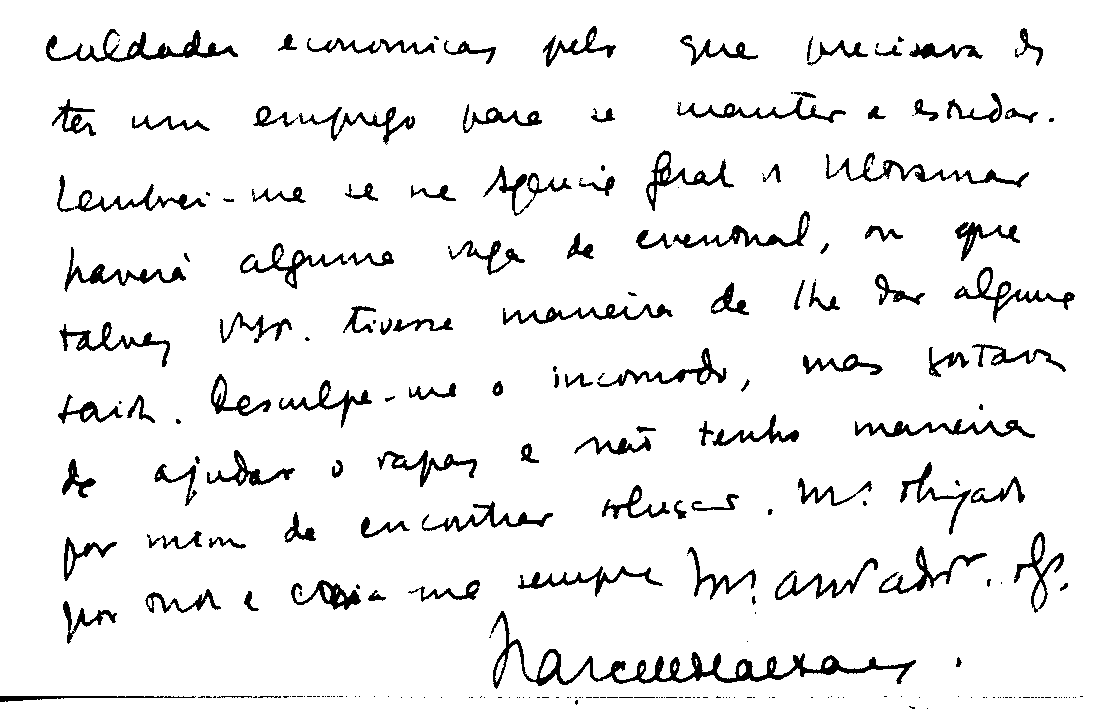 culdades economicas pelo que precisava de
ter um emprego para se manter a estudar.
Lembrei-me se na Agencia Geral do Ultramar
haverá alguma vaga de eventual, ou que
talvez tivesse maneira de lhe dar alguma
saida. Desculpe-me o incomodo, mas gostava
de ajudar o rapaz e não tenho maneira
por mim de encontrar solução. Mº. obrigado
por tudo e creia-me sempre Mº. ador. obg.